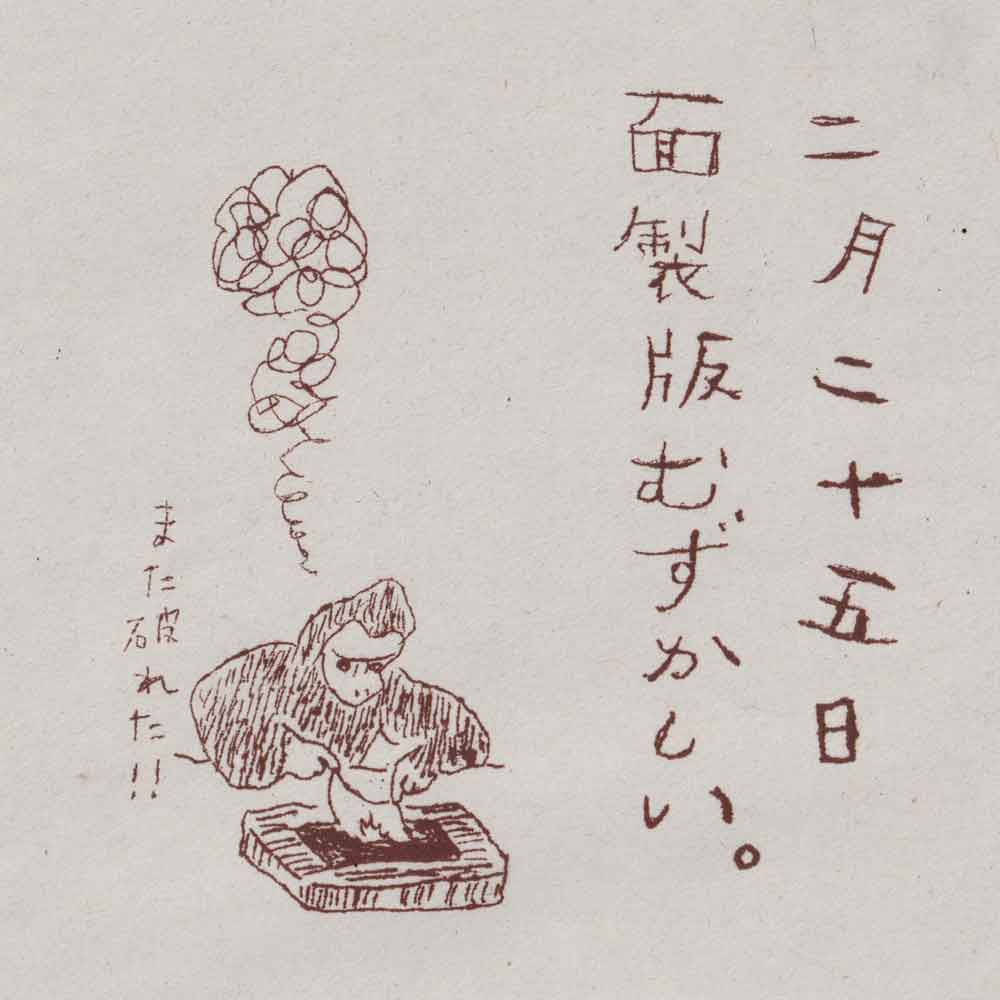 二月二十五日
面製版むずかしい。
また破れた!!